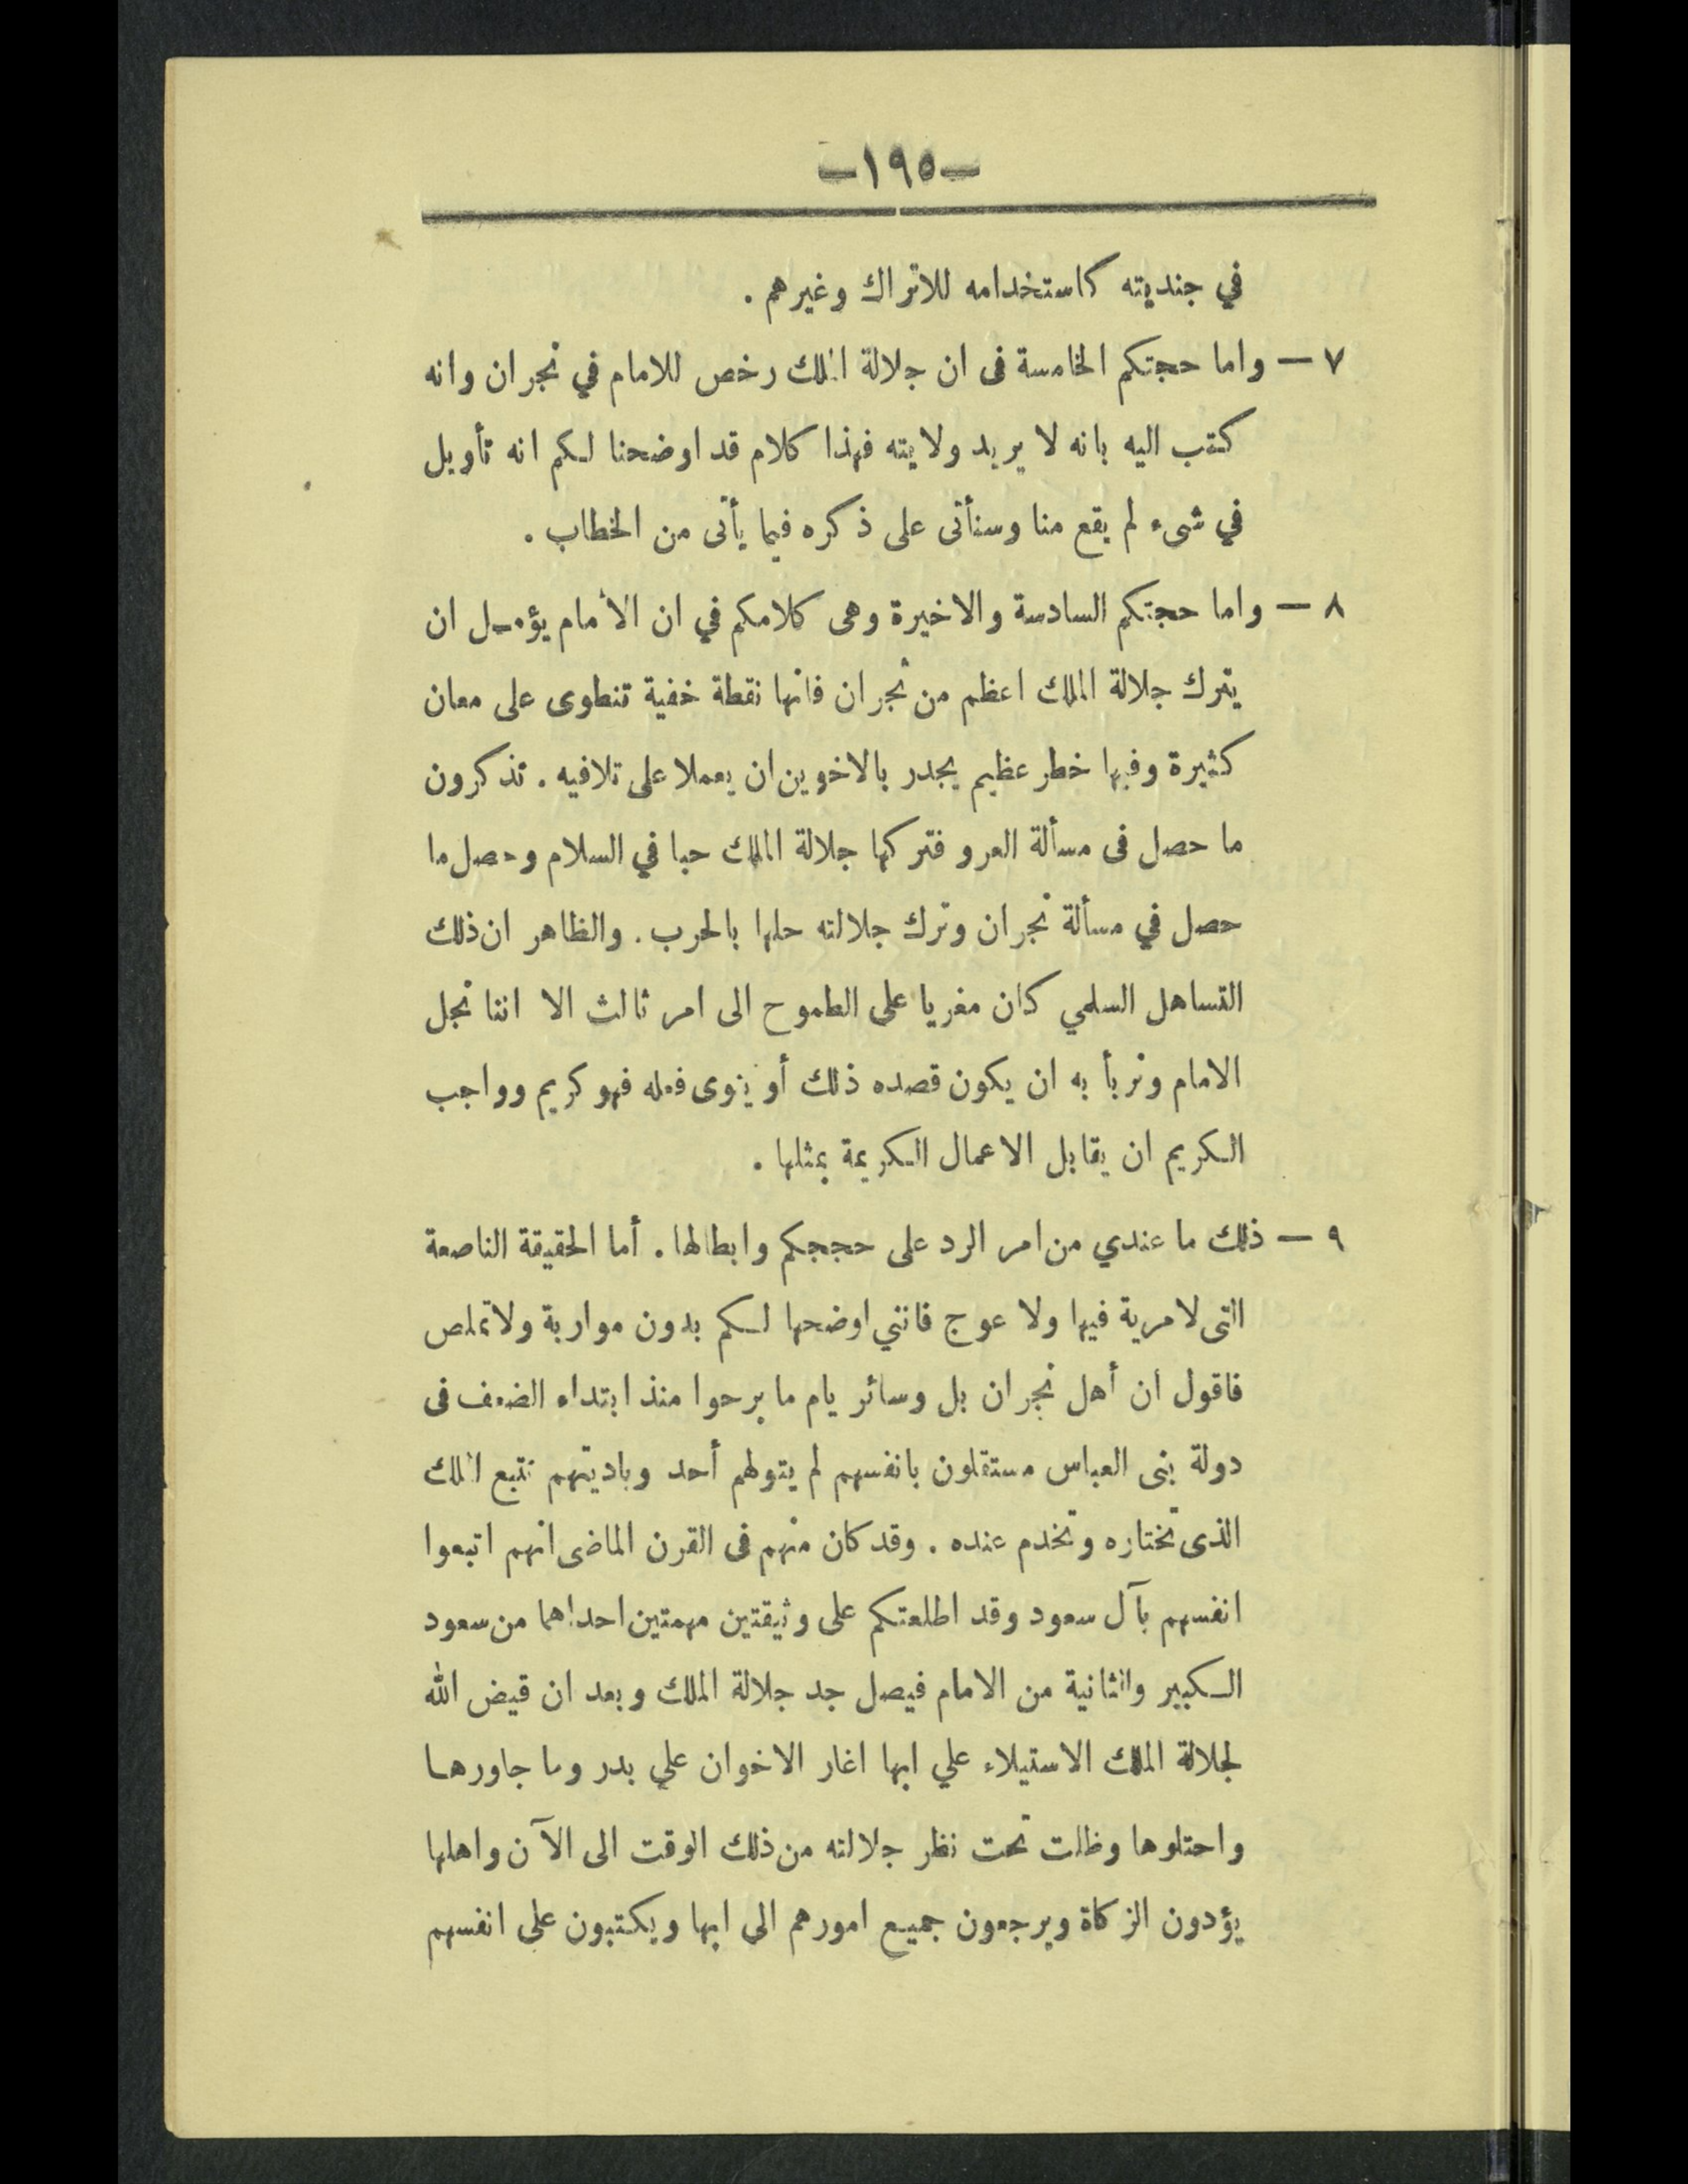 -١٩٥-
في جنديته كاستخدامه للاتراك وغيرهم .
٧ – واما حجتكم الخامسة فى ان جلالة الملك رخص للامام في نجران وانه
كتب اليه بانه لا يريد ولايته فهذا كلام قد اوضحنا لكم انه تأويل
في شىء لم يقع منا وسنأتى على ذكره فيما يأتى من الخطاب .
٨ – واما حجتكم السادسة والاخيرة وهى كلامكم في ان الأمام يؤمل ان
يترك جلالة الملك اعظم من نجران فانها نقطة خفية تنطوى على معان
كثيرة وفيها خطر عظيم يجدر بالاخوين ان يعملا على تلافيه . تذكرون
ما حصل فى مسألة العرو فتركها جلالة الملك حبا في السلام وحصل ما
حصل في مسألة نجران وترك جلالته حلها بالحرب . والظاهر ان ذلك
التساهل السلمي كان مغريا على الطموح الى امر ثالث الا اننا نجل
الامام ونربأ به ان يكون قصده ذلك أو ينوى فعله فهو كريم وواجب
الكريم ان يقابل الاعمال الكريمة بمثلها .
٩ – ذلك ما عندي من امر الرد على حججكم وابطالها . أما الحقيقة الناصعة
التى لا مرية فيها ولا عوج فانني اوضحها لكم بدون مواربة ولا تملص
فاقول ان أهل نجران بل وسائر يام ما برحوا منذ ابتداء الضعف فى
دولة بنى العباس مستقلون بانفسهم لم يتولهم أحد وباديتهم تتبع الملك
الذى تختاره وتخدم عنده . وقد كان منهم فى القرن الماضى انهم اتبعوا
انفسهم بآل سعود وقد اطلعتكم على وثيقتين مهمتين احداهما من سعود
الكبير والثانية من الامام فيصل جد جلالة الملك وبعد ان قيض الله
لجلالة الملك الاستيلاء علي ابها اغار الاخوان علي بدر وما جاورها
واحتلوها وظلت تحت نظر جلالته من ذلك الوقت الى الآن واهلها
يؤدون الزكاة ويرجعون جميع امورهم الى ابها ويكتبون على انفسهم